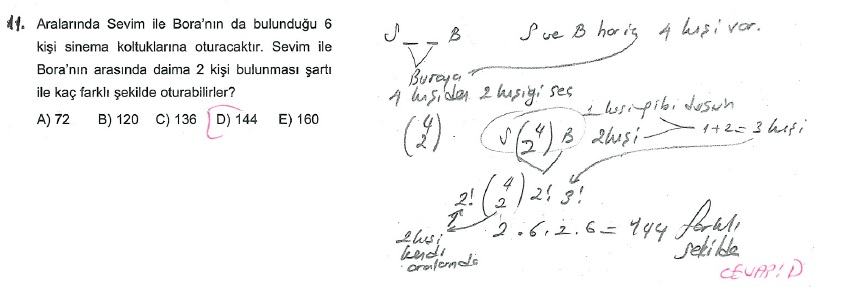 11. Aralarında Sevim ile Bora'nın da bulunduğu 6
kişi sinema koltuklarına oturacaktır. Sevim ile
Bora'nın arasında daima 2 kişi bulunması şartı
ile kaç farklı şekilde oturabilirler?
A) 72 B) 120 C) 136 D) 144 E) 160
S _ _ B S ve B hariç 4 kişi var.
Buraya
4 kişiden 2 kişiyi seç
1 kişi gibi düşün
(4 2) S (4 2) B 2 kişi 1+2=3 kişi
2! (4 2) 2! 3!
2.6.2.6=144 farklı
şekilde
2 kişi
kendi
aralarında
CEVAP: D